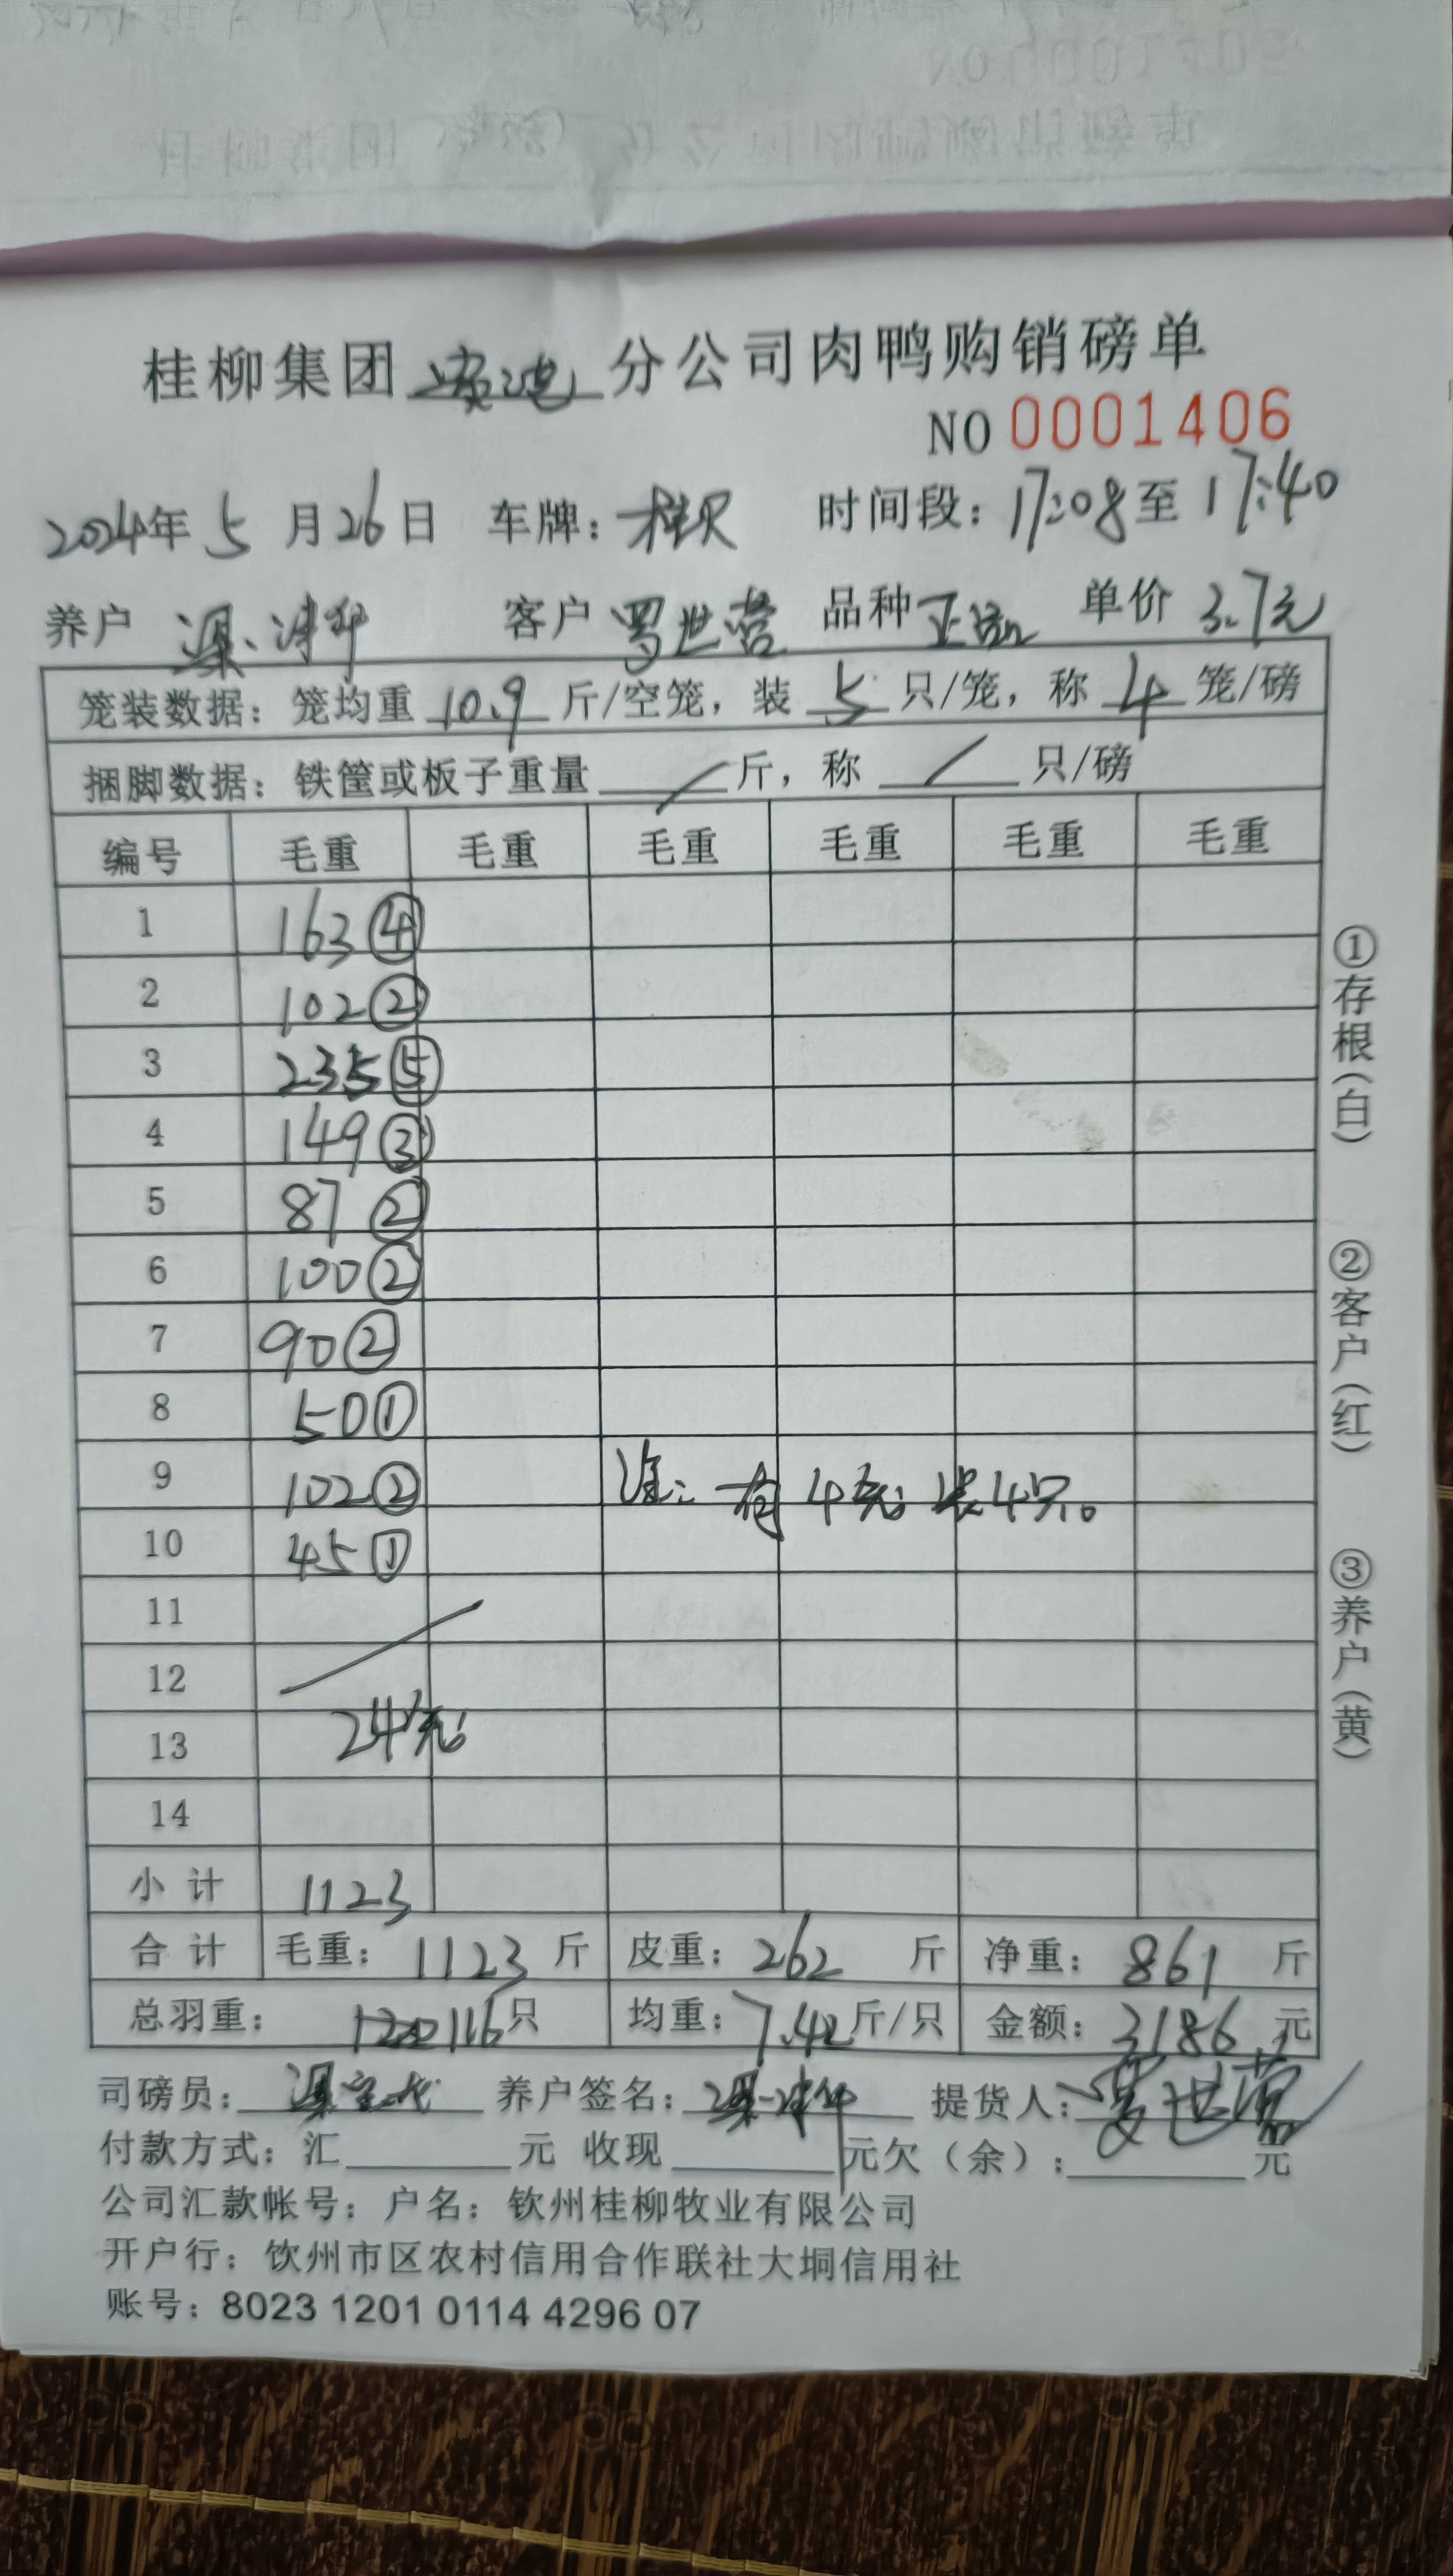 桂柳集团 灵山 分公司肉鸭购销磅单
NO 0001406
2024年 5 月 26 日 车牌： 时间段：17:08至 17:40
养户 梁 客户 罗世营 品种 正品 单价 3.7元
笼装数据：笼均重 10.9 斤/空笼，装 5 只/笼，称 4 笼/磅
捆脚数据：铁筐或板子重量 / 斤，称 / 只/磅
编号 毛重 毛重 毛重 毛重 毛重 毛重
1 163④
2 102②
3 235⑤
4 149③
5 87②
6 100②
7 90②
8 50①
9 102② 注：有4笼装4只。
10 45①
11
12
13 24笼
14
小计 1123
合计 毛重：1123斤 皮重：262斤 净重：861斤
总羽重：116只 均重：7.42斤/只 金额：3186元
司磅员：梁 养户签名：梁 提货人：罗世营
付款方式：汇 元 收现 元欠（余）： 元
公司汇款帐号：户名：钦州桂柳牧业有限公司
开户行：饮州市区农村信用合作联社大垌信用社
账号：8023 1201 0114 4296 07
①存根（白）
②客户（红）
③养户（黄）